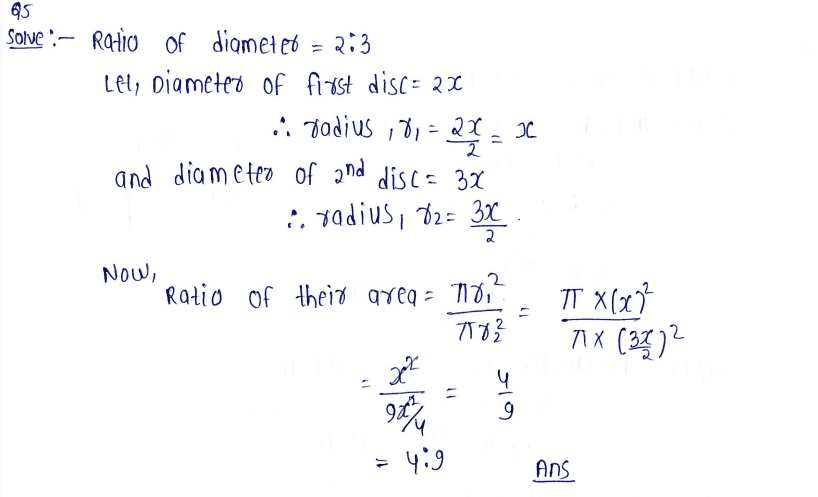 Q5
Solve :- Ratio of diameter = 2:3
Let, Diameter of first disc = 2x
∴ radius, r₁ = 2x/2 = x
and diameter of 2nd disc = 3x
∴ radius, r₂ = 3x/2 .
Now,
Ratio of their area = πr₁²/πr₂² = π×(x)²/π×(3x/2)²
= x²/9x²/4 = 4/9
= 4:9 Ans